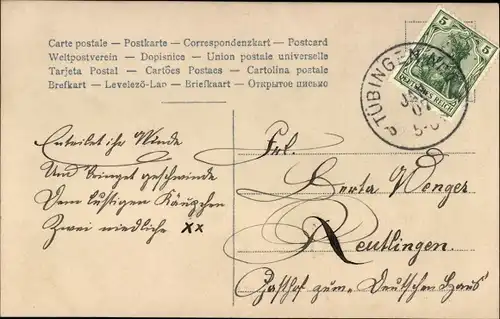 Carte postale — Postkarte — Correspondenzkart — Postcard
Weltpostverein — Dopisnice — Union postale universelle
Tarjeta Postal — Cartões Postaes — Cartolina postale
Brefkart — Levelező-Lap — Briefkaart — Открытое письмо
5 5
DEUTSCHES REICH
TÜBINGEN
07
5-6
Enteilet ihr Winde
Und bringet geschwinde
Dem lustigen Käuzchen
Zwei niedliche xx
Frl.
Berta Wenger
Reutlingen.
Gasthof zum „Deutschen Haus"